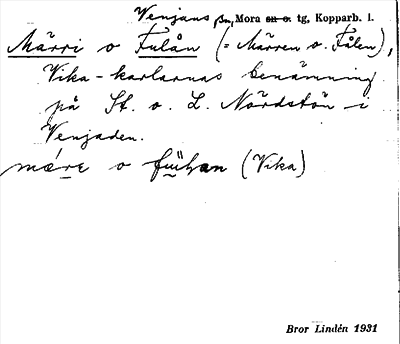 Venjans sn, Mora sn o. tg, Kopparb. l.
Märri o Fulån (= Märren o. Fålen),
Vika-karlarnas benämning
på St. o. L. Nördstön i
Venjaden.
mǽrɛ o
(Vika)
Bror Lindén 1931